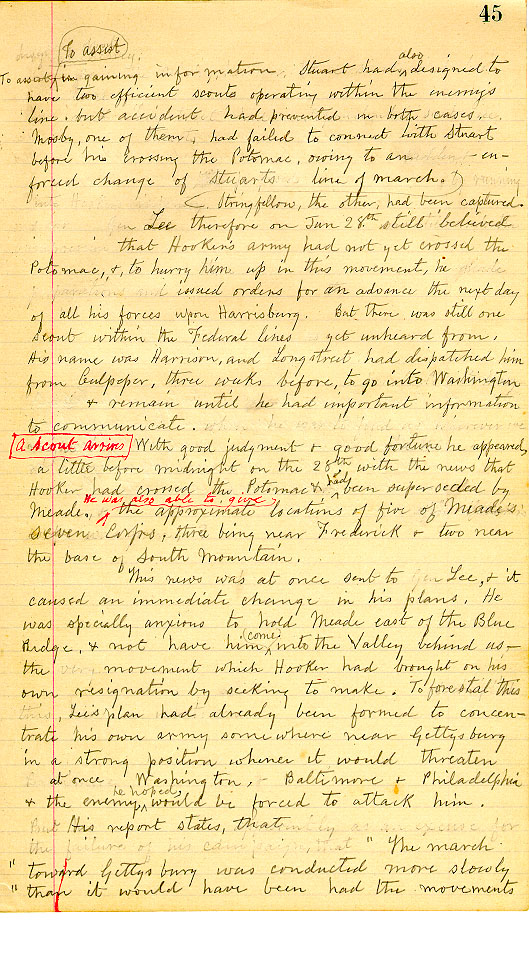 45
To assist
To assist in gaining information, Stuart had also designed to
have two efficient scouts operating within the enemy's
line. but accident had prevented in both cases.
Mosby, one of them, had failed to connect with Stuart
before his crossing the Potomac, owing to an en-
forced change of Stuarts line of march.)
(Stringfellow, the other, had been captured.
Lee therefore on Jun 28th still believed
that Hooker's army had not yet crossed the
Potomac, &, to hurry him up in this movement, he
issued orders for an advance the next day
of all his forces upon Harrisburg. But there was still one
scout within the Federal lines yet unheard from.
His name was Harrison, and Longstreet had dispatched him
from Culpeper, three weeks before, to go into Washington
& remain until he had important information
to communicate.
A Scout arrives With good judgment & good fortune he appeared
a little before midnight on the 28th with the news that
Hooker had crossed the Potomac & had been superseded by
Meade. He was also able to give, the approximate locations of five of Meade's
seven Corps, three being near Frederick & two near
the base of South Mountain.
This news was at once sent to Gen Lee, & it
caused an immediate change in his plans. He
was specially anxious to hold Meade east of the Blue
Ridge, & not have him come into the Valley behind us—
the movement which Hooker had brought on his
own resignation by seeking to make. To forestal this
, Lee's plan had already been formed to concen-
trate his own army somewhere near Gettysburg
in a strong position whence it would threaten
at once Washington, Baltimore & Philadelphia
& the enemy, he hoped, would be forced to attack him.
But His report states, that
the failure of his campaign, that "The march
"toward Gettysburg was conducted more slowly
"than it would have been had the movements